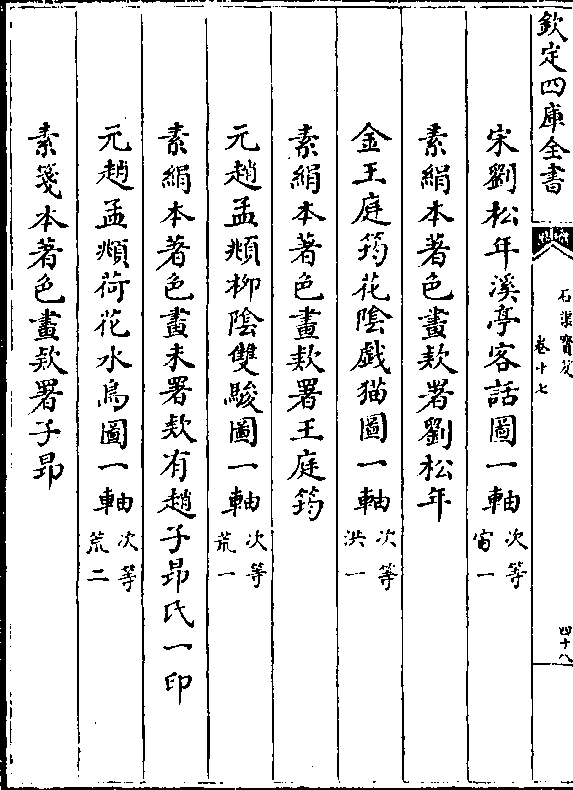 欽定四庫全書
石渠寶笈
卷十七
四十八
宋劉松年溪亭客話圖一軸次等宙一
素絹本著色畫款署劉松年
金王庭筠花陰戲猫圖一軸次等洪一
素絹本著色畫款署王庭筠
元趙孟頫柳陰雙駿圖一軸次等荒一
素絹本著色畫未署款有趙子昂氏一印
元趙孟頫荷花水鳥圖一軸次等荒二
素箋本著色畫款署子昂